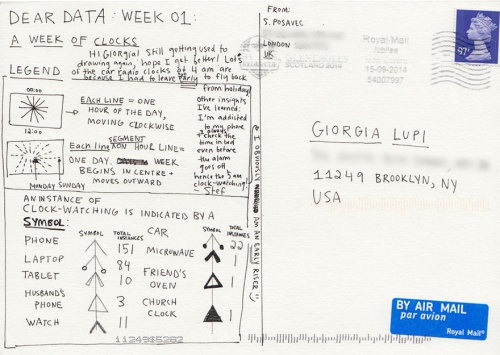 DEAR DATA: WEEK 01:
A WEEK OF CLOCKS
Hi Giorgia! Still getting used to
drawing again, hope I get better! Lots
of the car radio clocks at 4 am are
because I had to leave early to fly back
from holiday,
other insights
I've learned:
I'm addicted
to my phone
I always
+ check the
time in bed
even before
the alarm
goes off
hence the 5 am
clock-watching!
- Stef
& I OBVIOUSLY AM AN EARLY RISER
LEGEND
00:00
12:00
EACH LINE = ONE
HOUR OF THE DAY,
MOVING CLOCKWISE
SEGMENT
Each line ON HOUR LINE =
ONE DAY. WEEK
BEGINS IN CENTRE +
MOVES OUTWARD
MONDAY SUNDAY
AN INSTANCE OF
CLOCK-WATCHING IS INDICATED BY A
SYMBOL:
SYMBOL TOTAL INSTANCES
PHONE 151
LAPTOP 84
TABLET 10
HUSBAND'S
PHONE 3
WATCH 11
SYMBOL TOTAL INSTANCES
CAR 22
MICROWAVE 1
FRIEND'S
OVEN 1
CHURCH
CLOCK 1
FROM:
S. POSAVEC
LONDON
UK
Royal Mail
15-09-2014
54007997
97p
GIORGIA LUPI
11249 BROOKLYN, NY
USA
BY AIR MAIL
par avion
Royal Mail